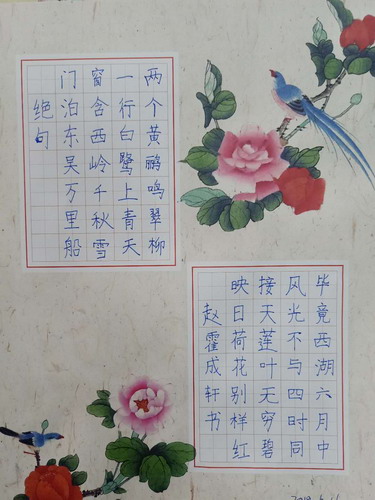 两个黄鹂鸣翠柳
一行白鹭上青天
窗含西岭千秋雪
门泊东吴万里船
绝句
毕竟西湖六月中
风光不与四时同
接天莲叶无穷碧
映日荷花别样红
赵霍成轩书